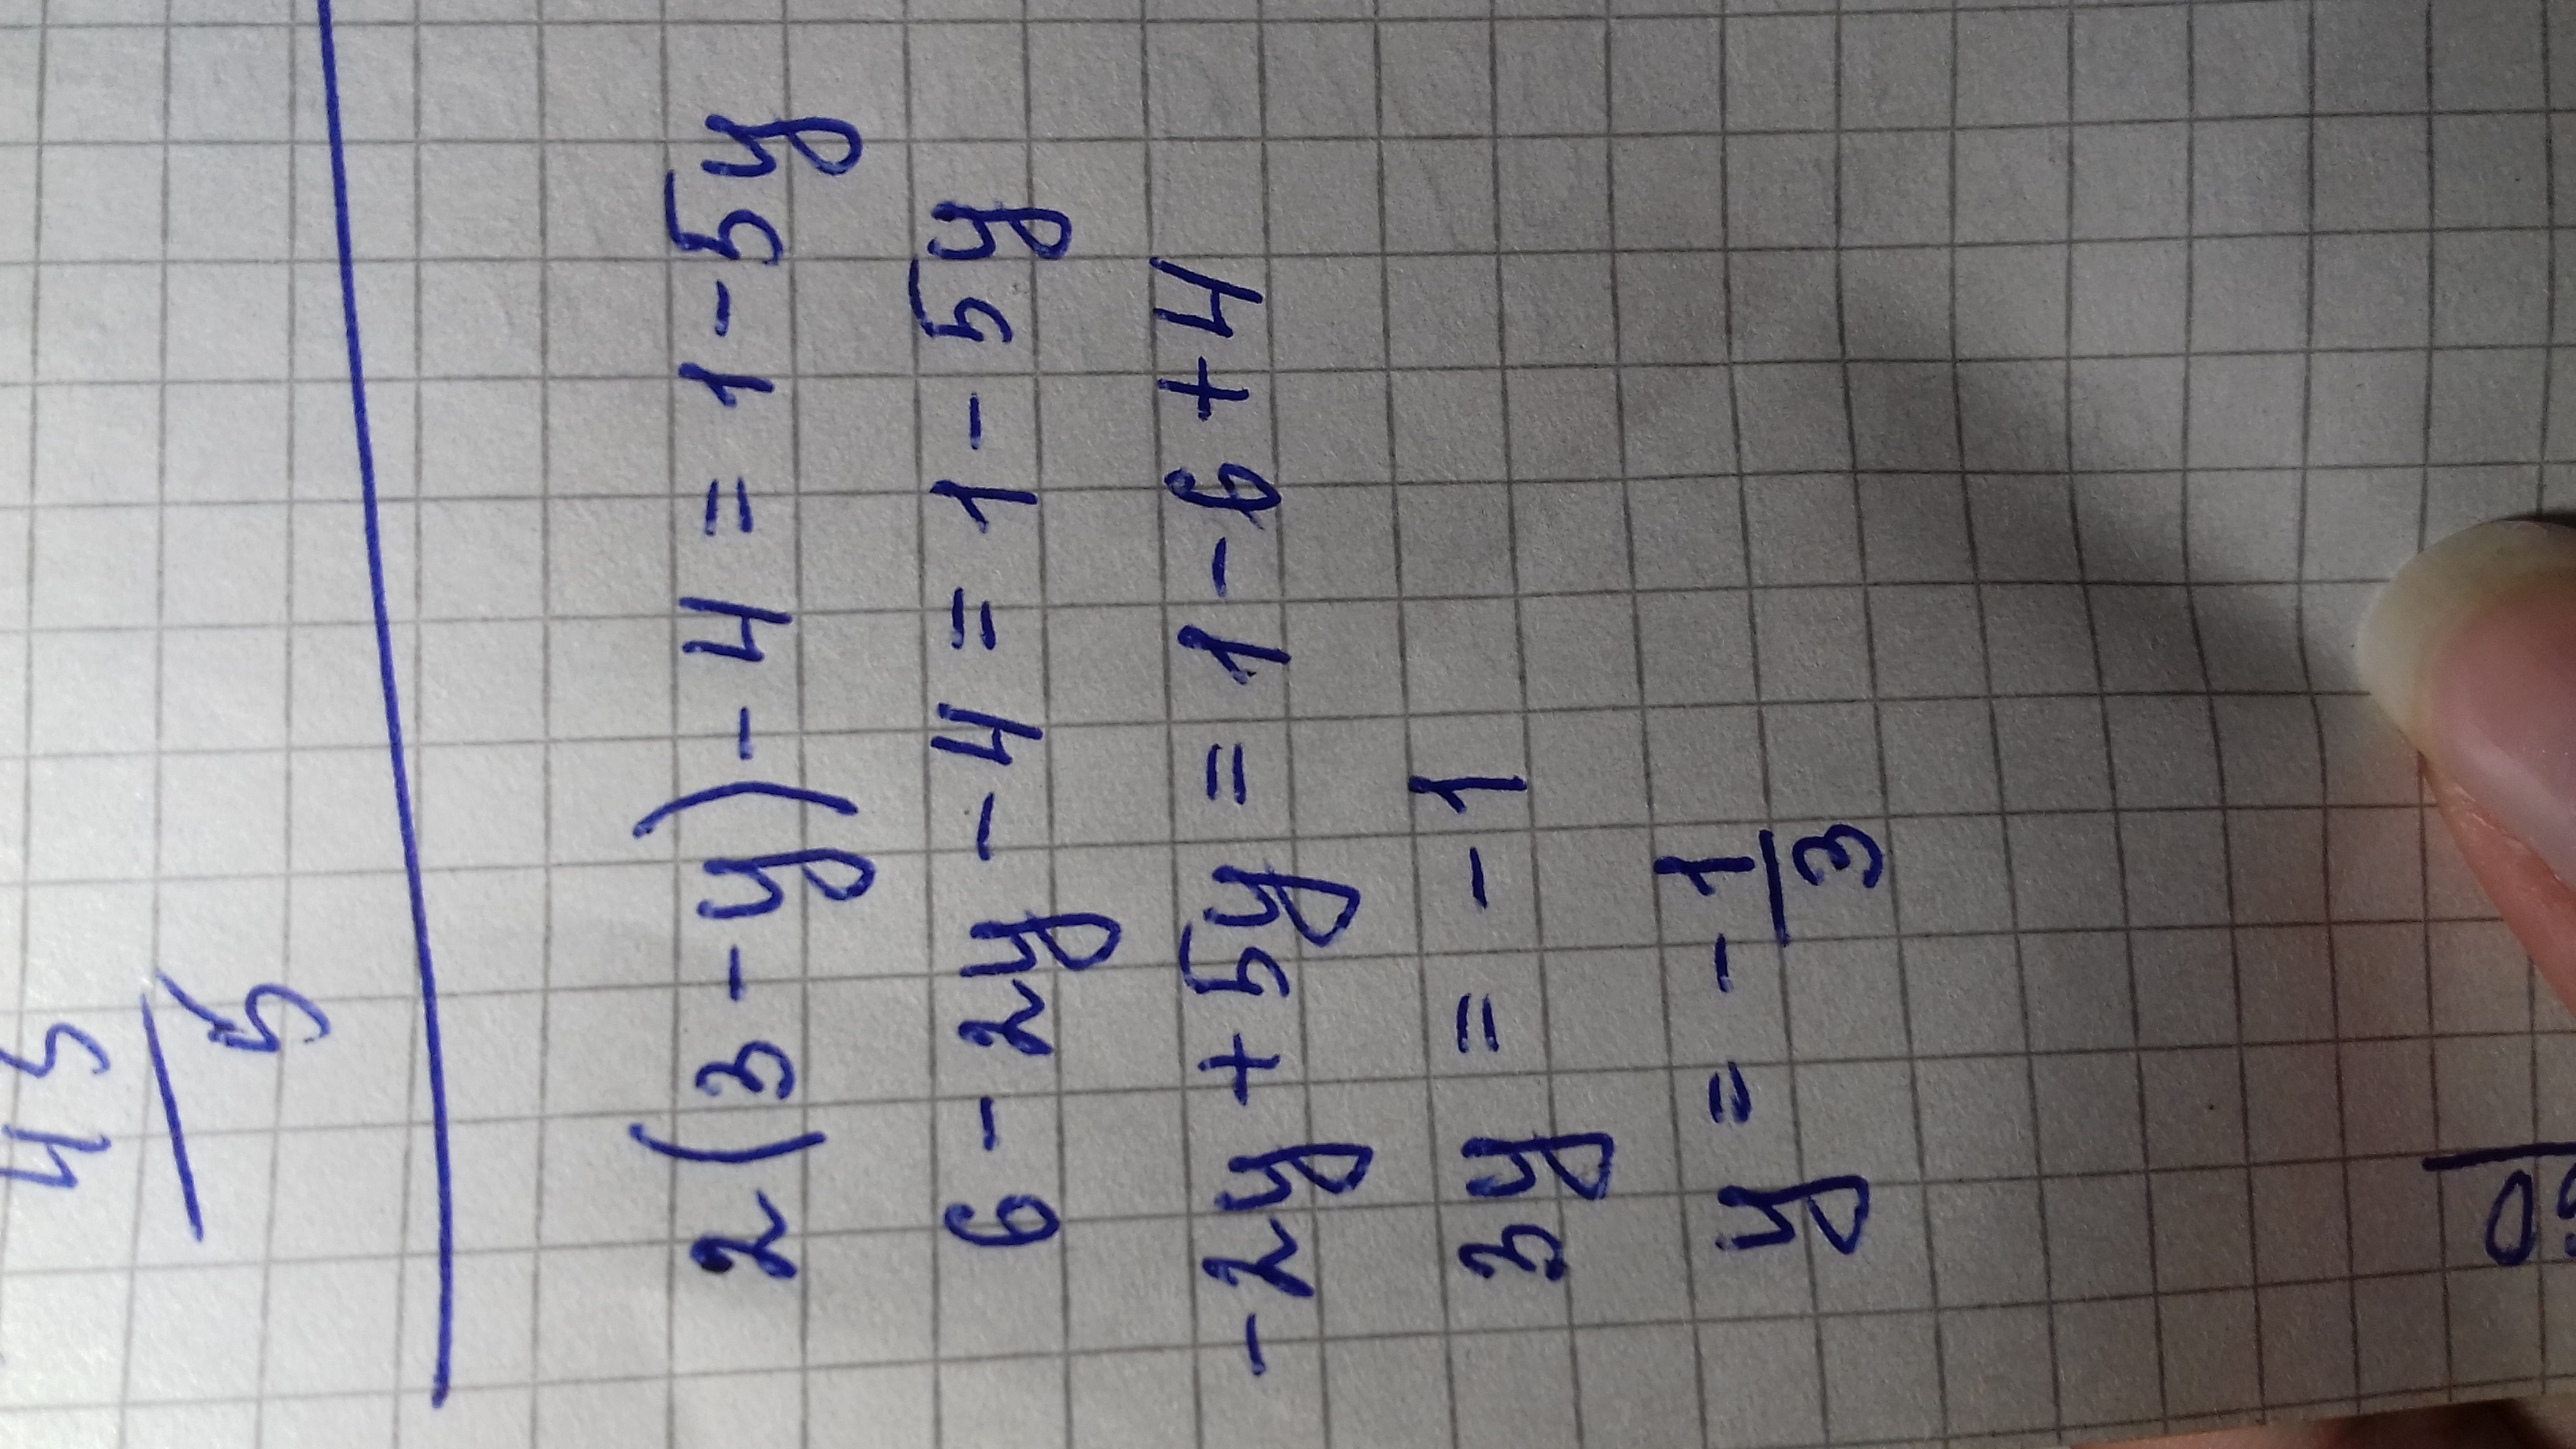 45
5
2(3-y)-4=1-5y
6-2y-4=1-5y
-2y+5y=1-6+4
3y=-1
y=-1/3